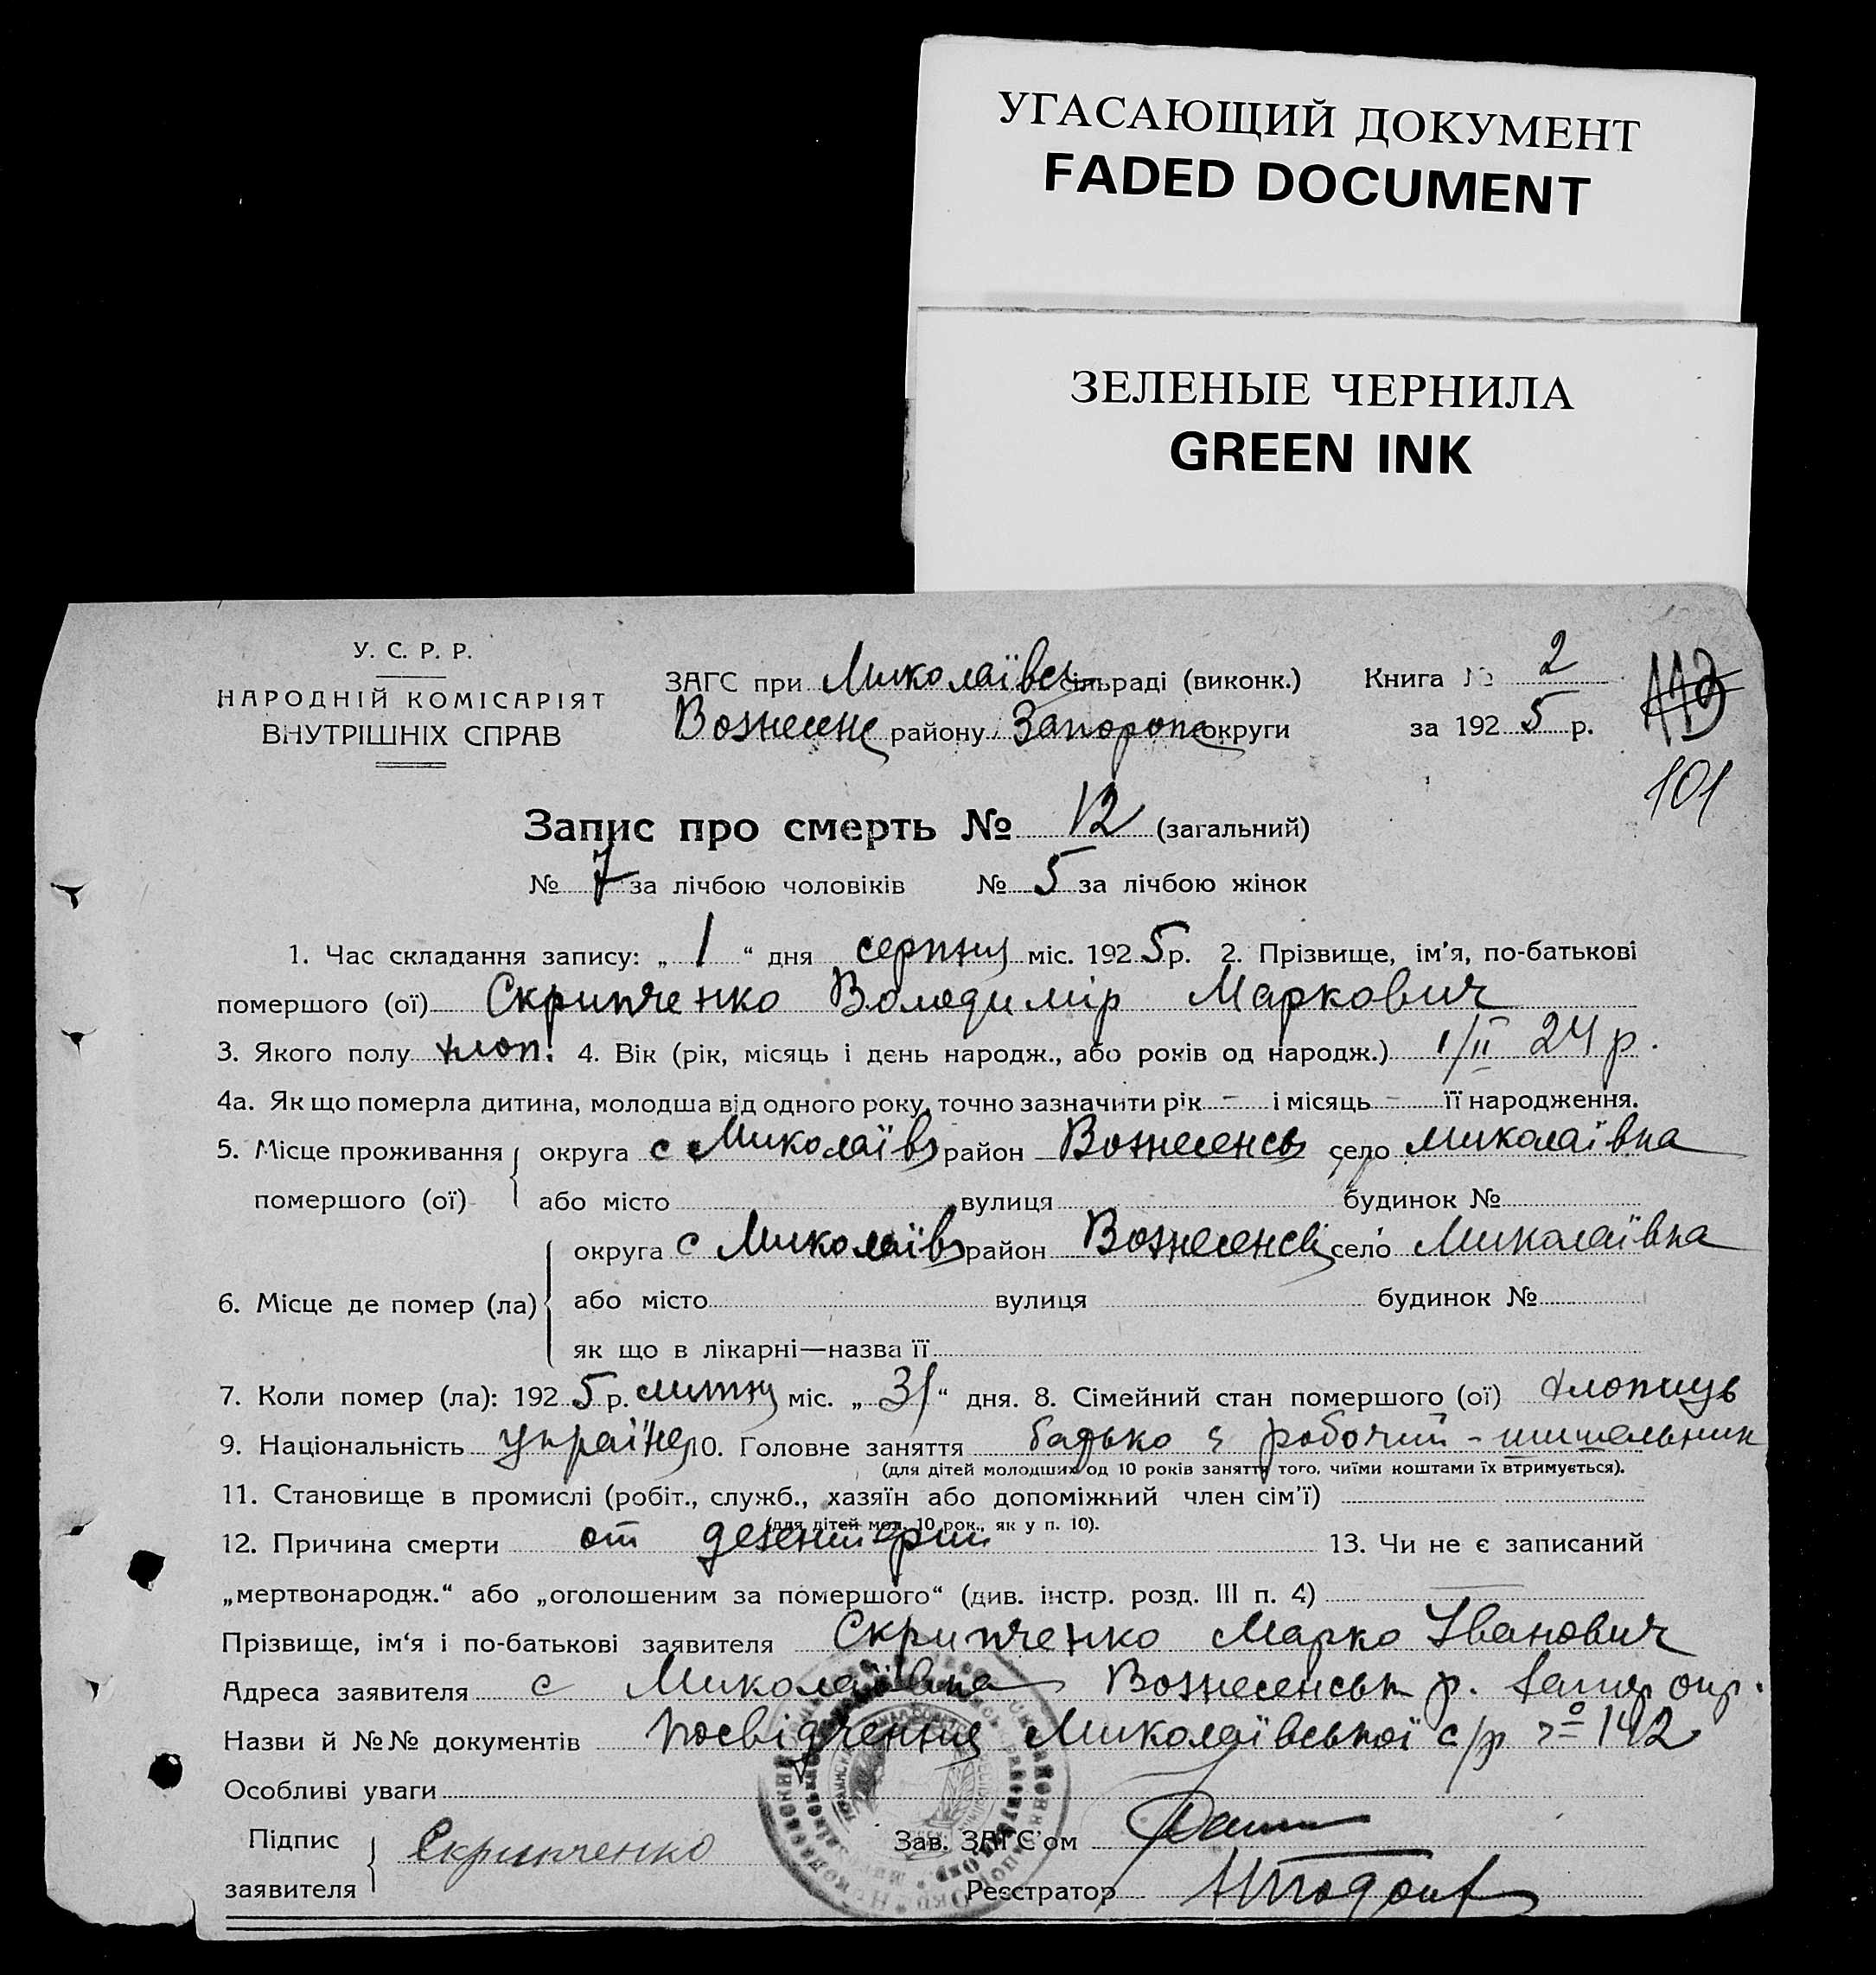 УГАСАЮЩИЙ ДОКУМЕНТ
FADED DOCUMENT
ЗЕЛЕНЫЕ ЧЕРНИЛА
GREEN INK
У. С. Р. Р.
НАРОДНІЙ КОМІСАРІЯТ
ВНУТРІШНІХ СПРАВ
ЗАГС при Миколаївсь сільраді (виконк.)
Вознесенс району Запоропс округи
Книга № 2
за 1925 р.
113
101
Запис про смерть № 12 (загальний)
№ 7 за лічбою чоловіків № 5 за лічбою жінок
1. Час складання запису: „1“ дня серпня міс. 1925 р. 2. Прізвище, ім'я, по-батькові
помершого (ої) Скрипченко Володимір Маркович
3. Якого полу хлоп. 4. Вік (рік, місяць і день народж., або років од народж.) 1/II 24 р.
4а. Як що померла дитина, молодша від одного року, точно зазначити рік - і місяць - її народження.
5. Місце проживання помершого (ої) округа с Миколаїв район Вознесенсь село Миколаївка
або місто вулиця будинок №
6. Місце де помер (ла) округа с Миколаїв район Вознесенсь село Миколаївка
або місто вулиця будинок №
як що в лікарні—назва її
7. Коли помер (ла): 1925 р. липня міс. „31“ дня. 8. Сімейний стан помершого (ої) хлопець
9. Національність україне 10. Головне заняття батько є робочий -
(для дітей молодших од 10 років заняття того, чиїми коштами їх втримується).
11. Становище в промислі (робіт., служб., хазяїн або допоміжний член сім'ї)
(для дітей мол. 10 рок., як у п. 10).
12. Причина смерти от дезентерии 13. Чи не є записаний
„мертвонародж.“ або „оголошеним за помершого“ (див. інстр. розд. III п. 4)
Прізвище, ім'я і по-батькові заявителя Скрипченко Марко Іванович
Адреса заявителя с Миколаївка Вознесенськ р. Запор окр.
Назви й №№ документів посвідчення Миколаївської с/р № 142
Особливі уваги
Підпис заявителя Скрипченко
Зав. ЗАГС'ом
Реєстратор